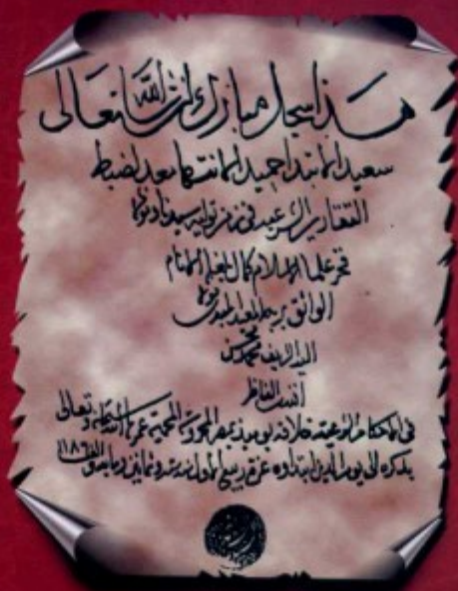 هذا سجل مبارك ان شاء الله تعالى
سعيد الابتدا حميد الانتها معد لضبط
التقارير الشرعية فى زمن تولية سيدنا ومولانا
فخر علما الاسلام كمال الهمام
الواثق بربه المعيد المبدى مولانا
السيد الشريف محمد
افندى الناظر
فى الاحكام الشرعية خلافه يومئذ بمصر المحروسة المحمية عمرها الله تعالى
بذكره الى يوم الدين ابتداوه غرة ربيع الاول سنة ست وثمانين وماية والف ١١٨٦